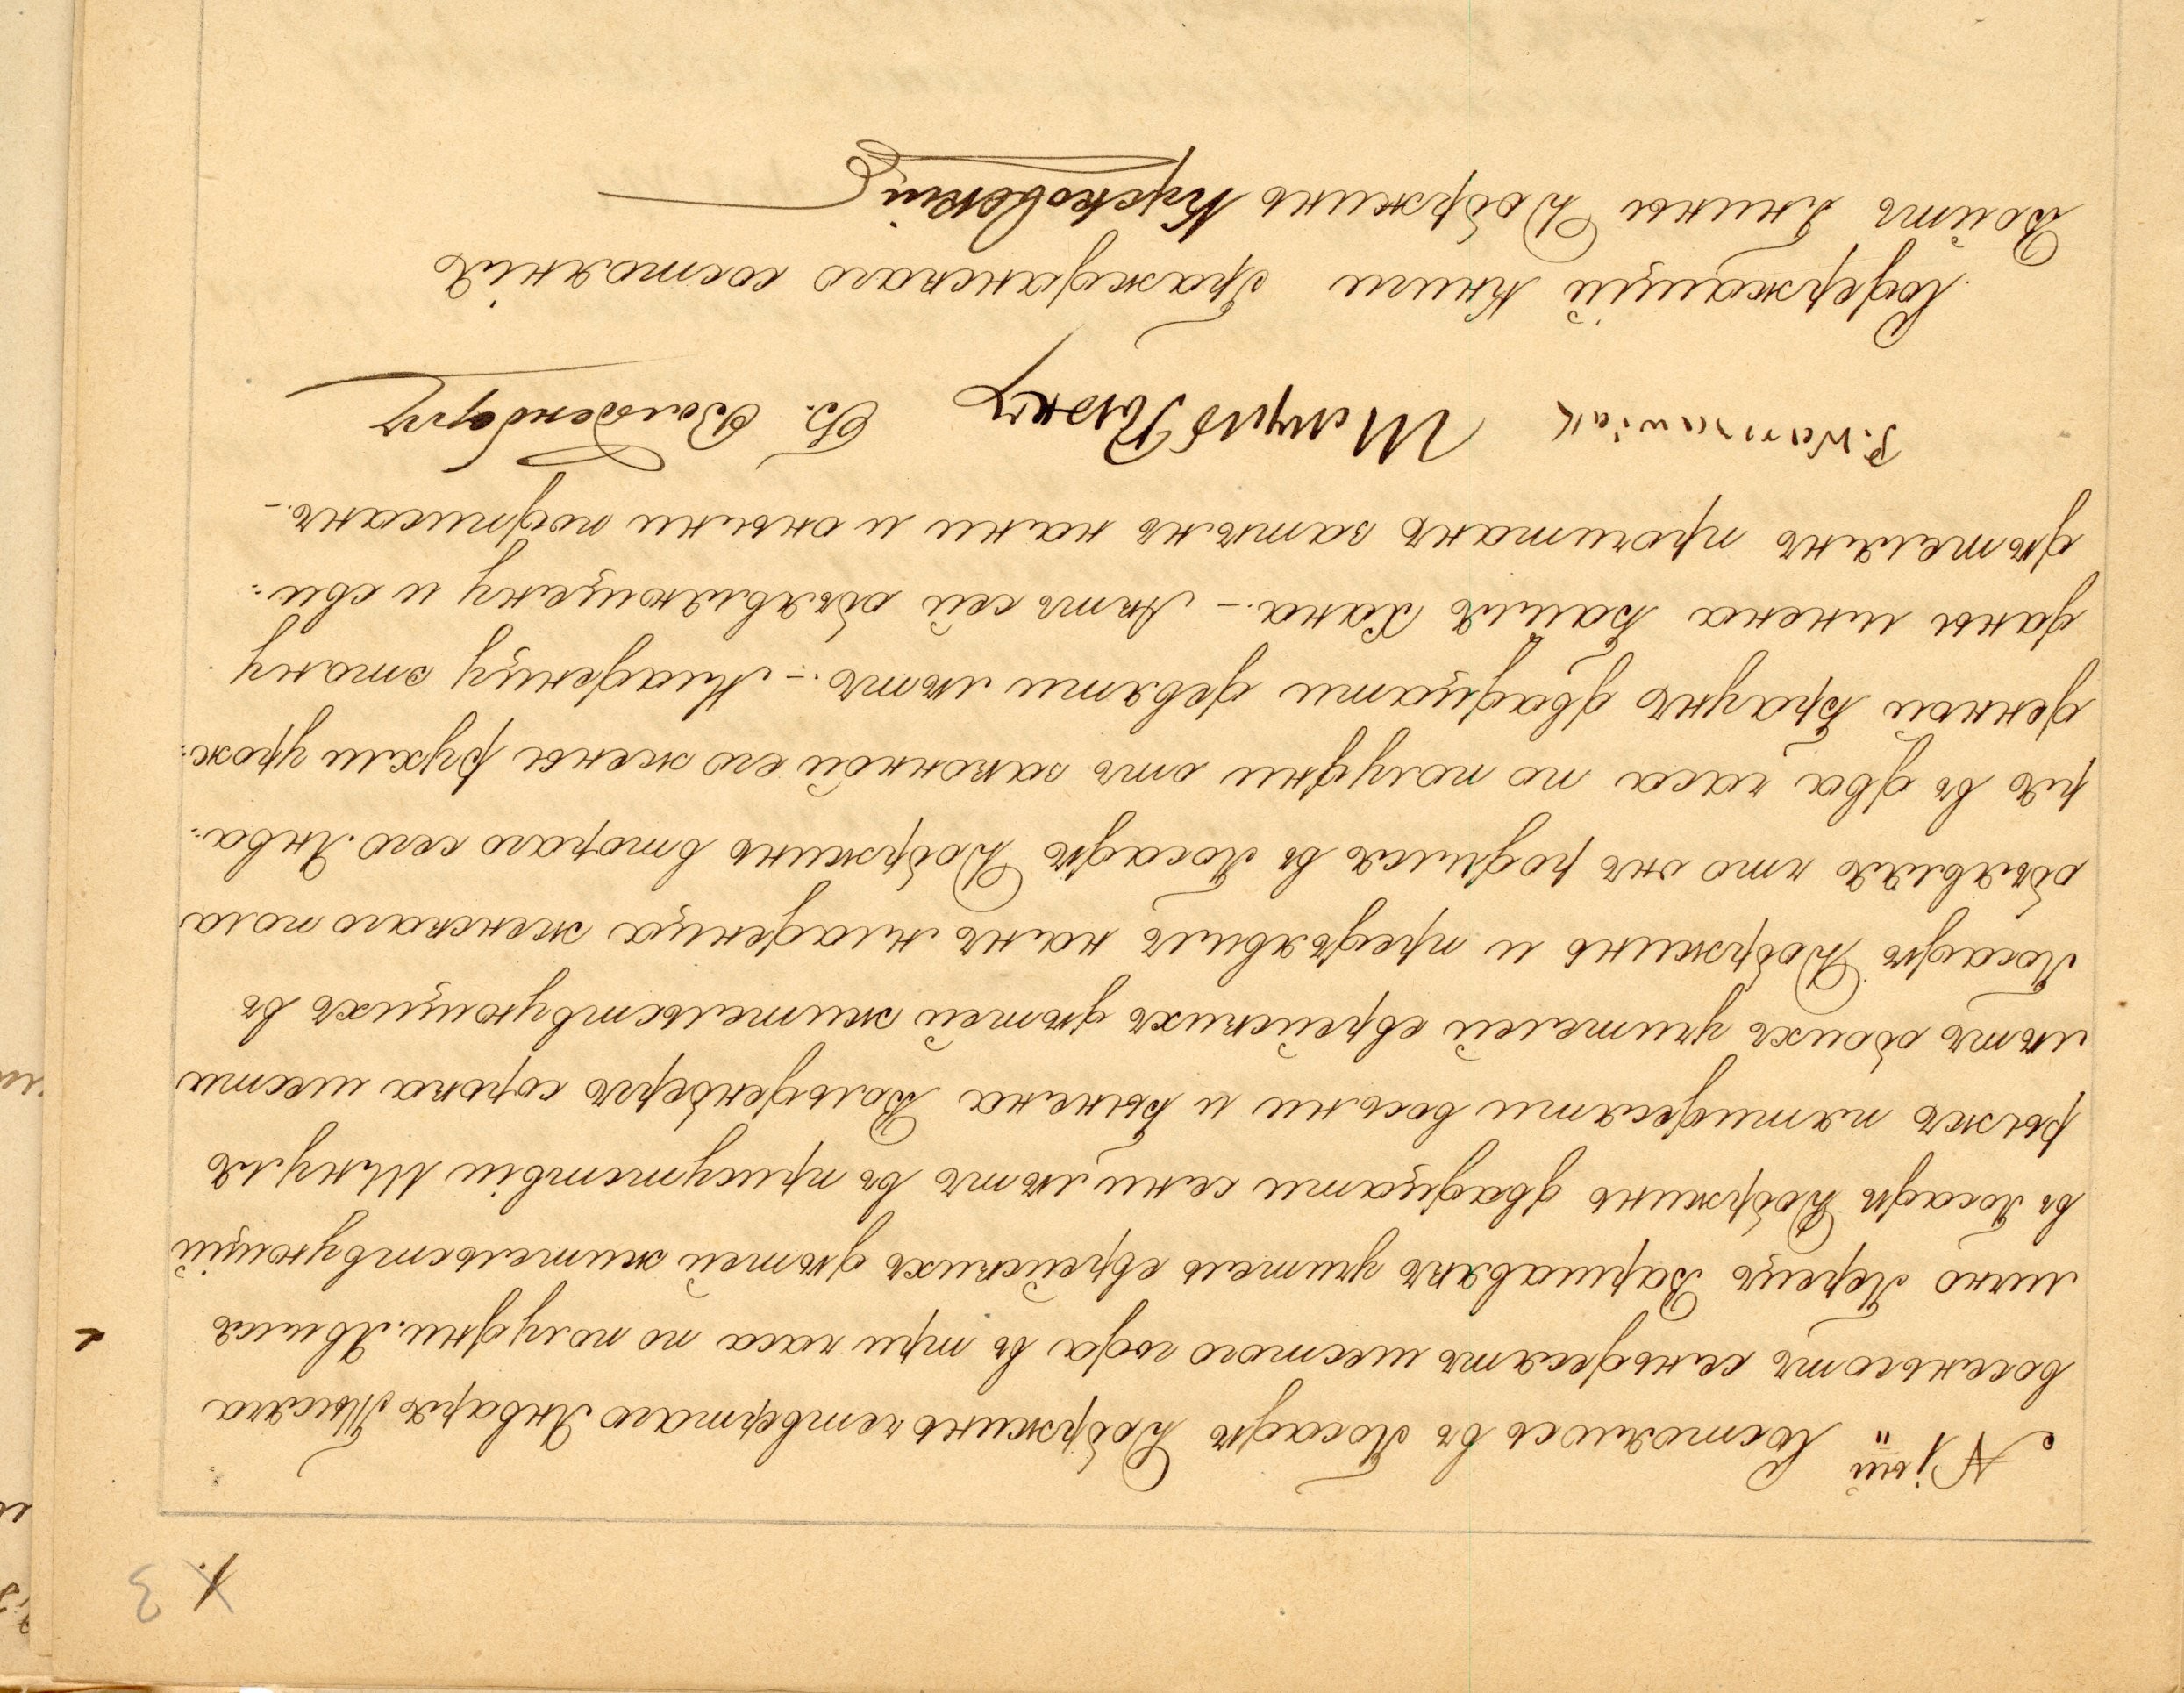 1. 3
N 1ый Состоялось въ Посадѣ Добржинь четвертаго Января Тысяча
восемьсотъ семьдесятъ шестого года въ три часа по полудни. Явился
лично Перецъ Варшавякъ учитель еврейскихъ дѣтей жительствующій
въ Посадѣ Добржинь двадцати семи лѣтъ въ присутствіи Шмуля
Рыжкъ пятидесяти восьми и Бынема Вольденбергъ сорока шести
лѣтъ обоихъ учителей еврейскихъ дѣтей жительствующихъ въ
Посадѣ Добржинь и предъявилъ намъ младенца женскаго пола
объявляя что онъ родился въ Посадѣ Добржинь втораго сего Янва-
ря въ два часа по полудни отъ законной его жены Рухли урож-
денной Браунъ двадцати девяти лѣтъ. – Младенцу этому
даны имена Байля Хана. – Актъ сей объявляющему и сви-
дѣтелямъ прочитанъ затѣмъ нами и оными подписанъ. –
P. Warszawiak Шмуль Рыжкъ Б. Вольденбергъ
Содержащій книги Гражданскаго состоянія
Войтъ Гмины Добржинь